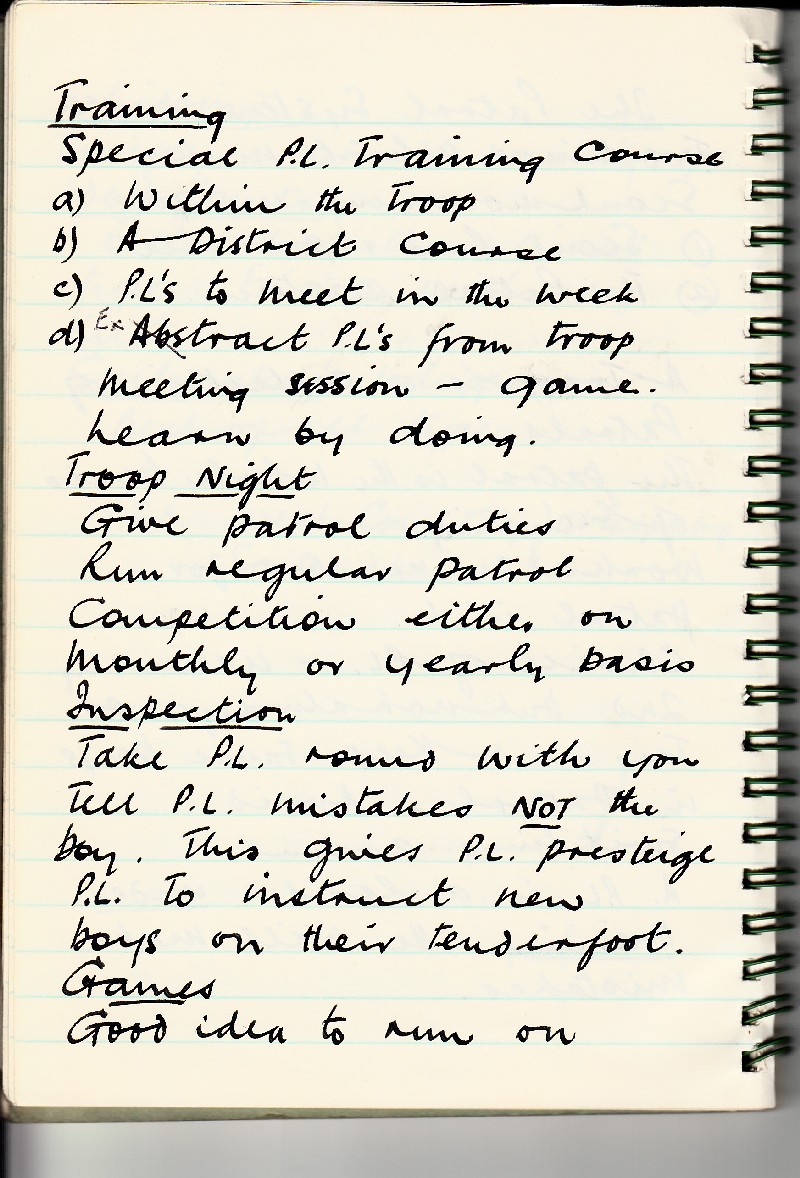 Training
Special P.L. Training Course
a) Within the Troop
b) A District Course
c) P.L's to meet in the week
d) Ex Abstract P.L's from troop
meeting session - game.
Learn by doing.
Troop Night
Give patrol duties
Run regular patrol
Competition either on
monthly or yearly basis
Inspection
Take P.L. round with you
Tell P.L. mistakes NOT the
boy. This gives P.L. presteige
P.L. To instruct new
boys on their tenderfoot.
Games
Good idea to run on